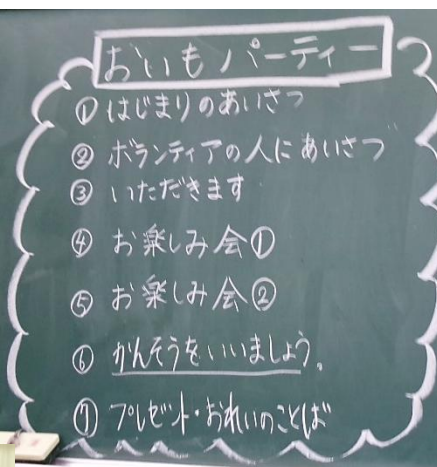 おいもパーティー
①はじまりのあいさつ
②ボランティアの人にあいさつ
③いただきます
④お楽しみ会①
⑤お楽しみ会②
⑥かんそうをいいましょう。
⑦プレゼント・おれいのことば